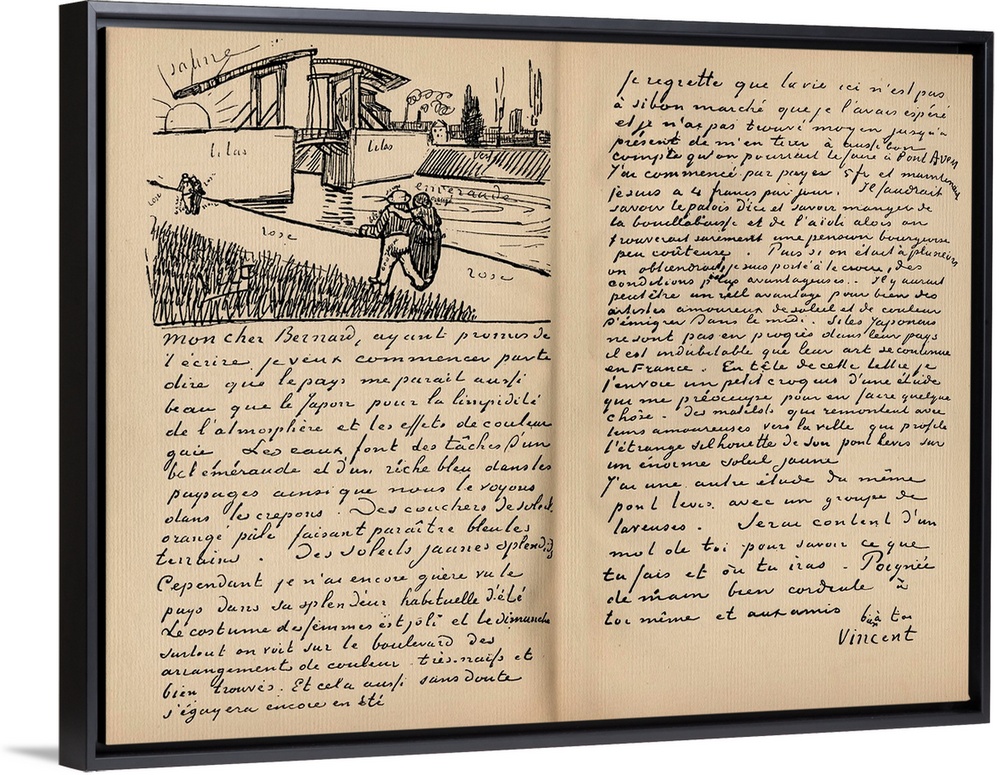 lilas
lilas
vert
emeraude
rose
rose
Mon cher Bernard, ayant promis de
t'écrire je veux commencer par te
dire que le pays me parait aussi
beau que le Japon pour la limpidité
de l'atmosphère et les effets de couleur
gaie Les eaux font des tâches d'un
bel éméraude et d'un riche bleu dans les
paysages ainsi que nous le voyons
dans les crepons. Des couchers de soleil
orangé pâle faisant paraître bleu les
terrains. Des soleils jaunes splendides
Cependant je n'ai encore guère vu le
pays dans sa splendeur habituelle d'été
Le costume des femmes est joli et le dimanche
surtout on voit sur le boulevard des
arrangement de couleur très naifs et
bien trouvés. Et cela aussi sans doute
s'égayera encore en été
Je regrette que la vie ici n'est pas
à si bon marché que je l'avais espéré
et je n'ai pas trouvé moyen jusqu'a
présent de m'en tirer à aussi bon
compte qu'on pourrait le faire à Pont Aven
J'ai commencé par payer 5 fr et maintenant
je suis a 4 francs par jour. Il faudrait
savoir le patois d'ici et savoir manger de
la bouillabaisse et de l'aioli alors on
trouverait surement une pension bourgeoise
peu coûteuse. Puis si on était à plusieurs
on obtiendrait, je suis porté à le croire, des
conditions plus avantageuses. Il y aurait
peut être un réel avantage pour bien des
artistes amoureux de soleil et de couleur
d'émigrer dans le midi. Si les Japonais
ne sont pas en progrès dans leur pays
il est indubitable que leur art se continue
en France. En tête de cette lettre je
t'envoie un petit croquis d'une étude
qui me préoccupe pour en faire quelque
chose. Des matelots qui remontent avec
leurs amoureuses vers la ville qui profile
l'étrange silhouette de son pont levis sur
un énorme soleil jaune
J'ai une autre étude du même
pont levis avec un groupe de
laveuses. Serai content d'un
mot de toi pour savoir ce que
tu fais et où tu iras - Poignée
de main bien cordiale à
toi même et aux amis
bien à toi
Vincent